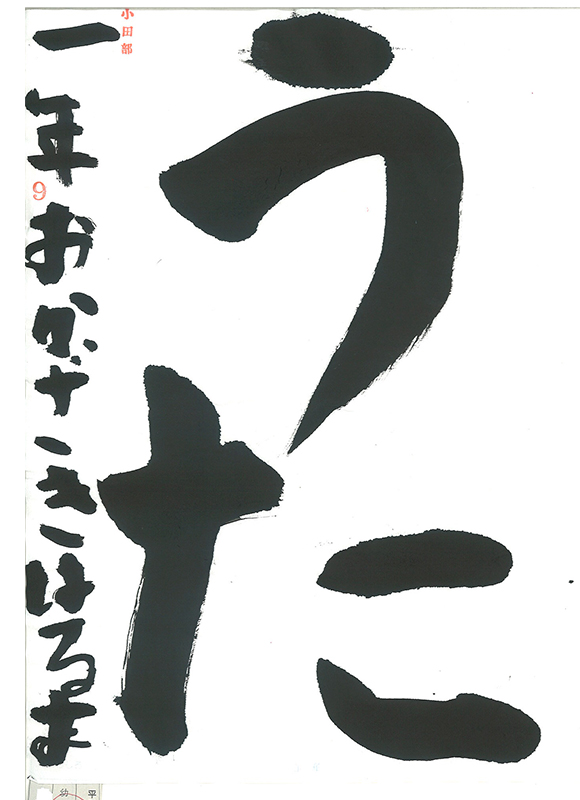 うた
小田部
一年おかざきはるま
9
平
幼